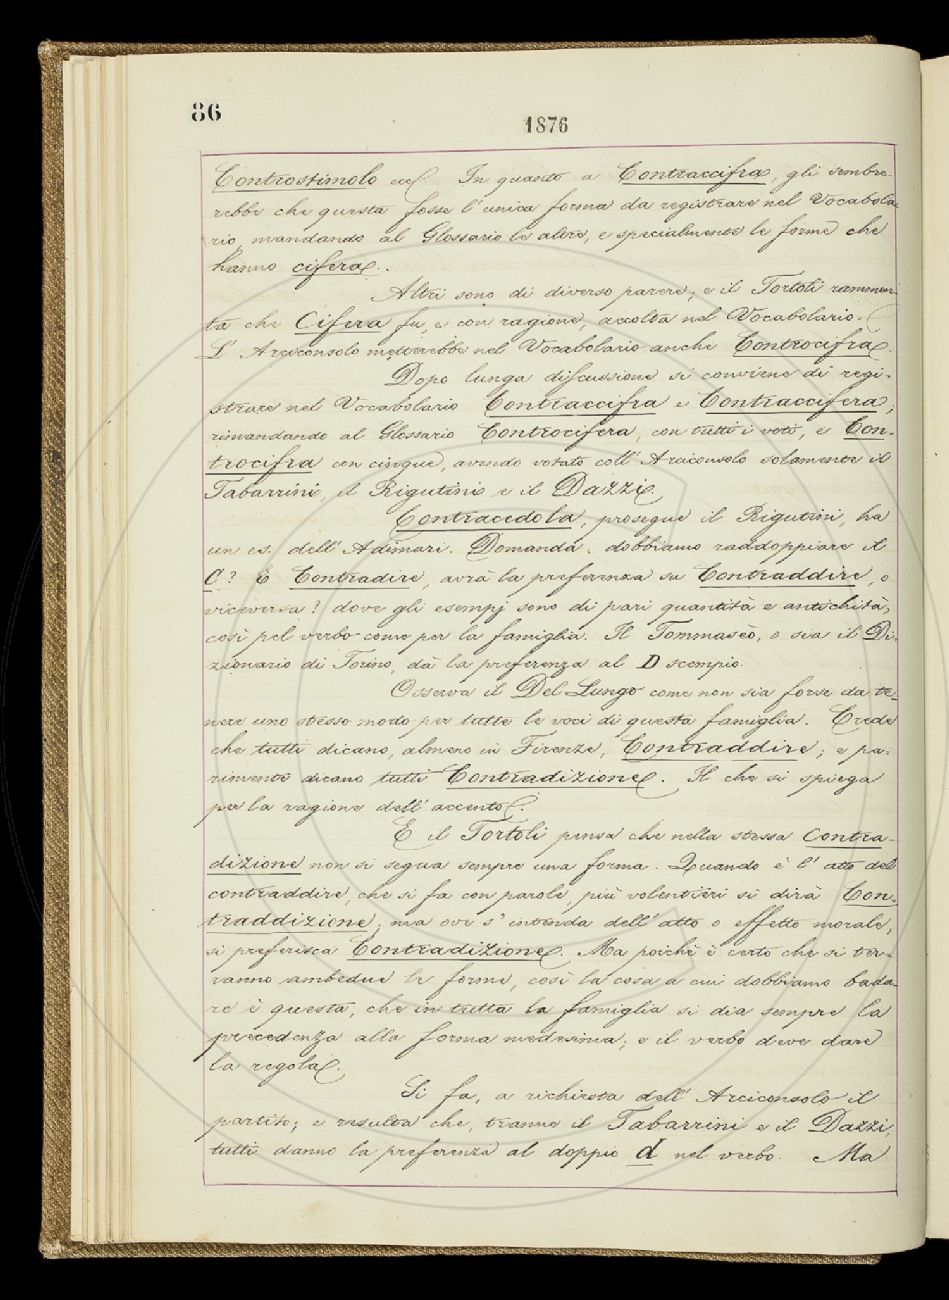 86
1876
Controstimolo ecc. In quanto a Contraccifra, gli sembre-
rebbe che questa fosse l'unica forma da registrare nel Vocabola-
rio, mandando al Glossario le altre, e specialmente le forme che
hanno cifera.
Altri sono di diverso parere; e il Tortoli rammen-
ta che Cifera fu, e con ragione, accolta nel Vocabolario.
L'Arciconsolo metterebbe nel Vocabolario anche Controcifra.
Dopo lunga discussione si conviene di regi-
strare nel Vocabolario Contraccifra e Contraccifera;
rimandando al Glossario Controcifera, con tutti i voti, e Con-
trocifra con cinque, avendo votato coll'Arciconsolo solamente il
Tabarrini, il Rigutini e il Dazzi.
Contracedola, prosegue il Rigutini, ha
un es. dell'Adimari. Domanda: dobbiamo raddoppiare il
C? E Contradire, avrà la preferenza su Contraddire, o
viceversa? dove gli esempj sono di pari quantità e antichità,
così pel verbo come per la famiglia. Il Tommaseo, o sia il Di-
zionario di Torino, dà la preferenza al D scempio.
Osserva il Del Lungo come non sia forse da te-
nere uno stesso modo per tutte le voci di questa famiglia. Crede
che tutti dicano, almeno in Firenze, Contraddire; e pa-
rimente dicano tutti Contradizione. Il che si spiega
per la ragione dell'accento.
E il Tortoli pensa che nella stessa Contra-
dizione non si segua sempre una forma. Quando è l'atto del
contraddire, che si fa con parole, più volentieri si dirà Con-
traddizione; ma ove s'intenda dell'atto o effetto morale,
si preferisca Contradizione. Ma poichè è certo che si ter-
ranno ambedue le forme, così la cosa a cui dobbiamo bada-
re è questa, che in tutta la famiglia si dia sempre la
precedenza alla forma medesima; e il verbo deve dare
la regola.
Si fa, a richiesta dell'Arciconsolo il
partito; e resulta che, tranne il Tabarrini e il Dazzi,
tutti danno la preferenza al doppio d nel verbo. Ma